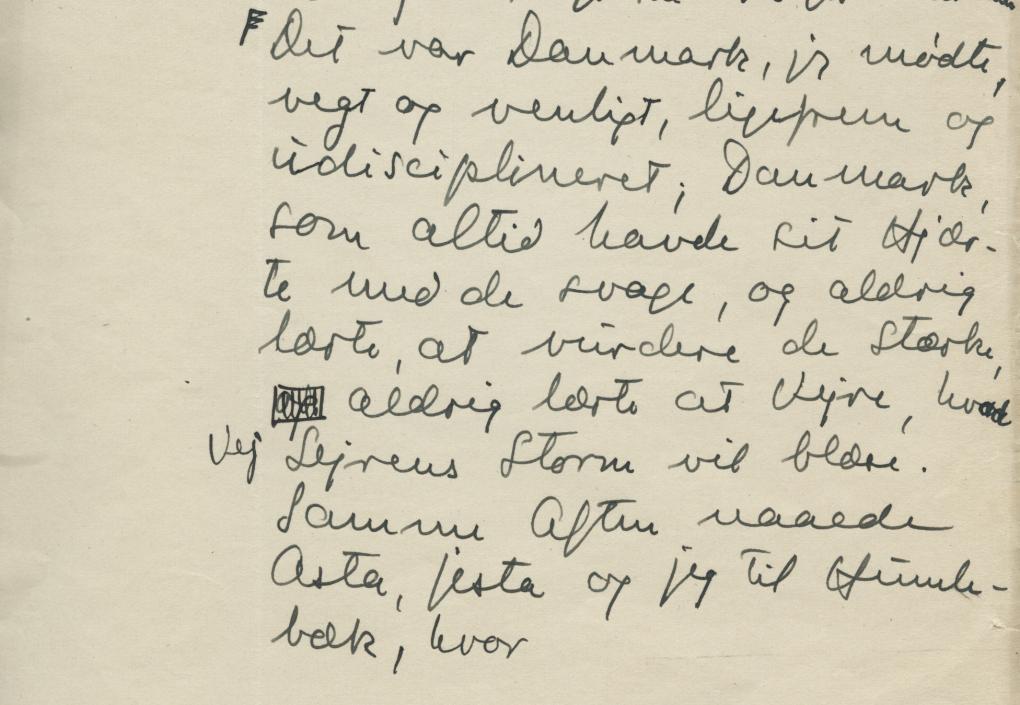 Det var Danmark, jeg mødte,
vegt og venligt, ligefrem og
udisciplineret; Danmark,
som altid havde sit Hjær-
te med de svage, og aldrig
lærte, at vurdere de Stærke,
aldrig lærte at Vejre, hvad
Vej Sejrens Storm vil blæse.
Samme Aften naaede
Asta, Jesta og jeg til Humle-
bæk, hvor